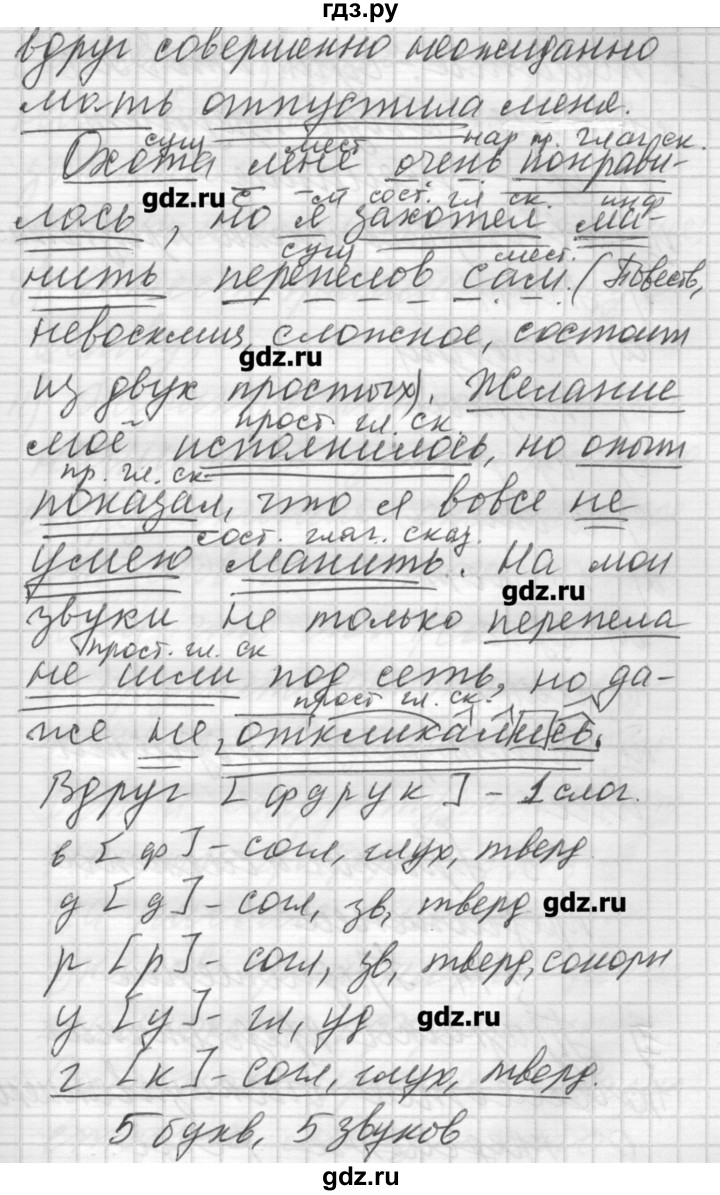 гдз.ру
вдруг совершенно неожиданно
мать отпустила меня.
сущ мест нар пр. глаг. ск.
Охота мне очень понрави-
gdz.ru
м сост. гл ск. инф
лась, но я захотел ма-
сущ мест.
нить перепелов сам. (Повеств,
невосклиц, сложное, состоит
gdz.ru
из двух простых). Желание
прост. гл. ск.
моё исполнилось, но опыт
пр. гл. ск.
показал, что я вовсе не
сост. глаг. сказ.
умею манить. На мои
gdz.ru
звуки не только перепела
прост. гл. ск
не шли под сеть, но да-
прост гл. ск.
же не откликались.
Вдруг [фдрук] - 1 слог.
в [ф] - согл, глух, тверд.
д [д] - согл, зв, тверд
gdz.ru
р [р] - согл, зв, тверд, сонорн
у [у] - гл, уд
gdz.ru
г [к] - согл, глух, тверд.
5 букв, 5 звуков
gdz.ru